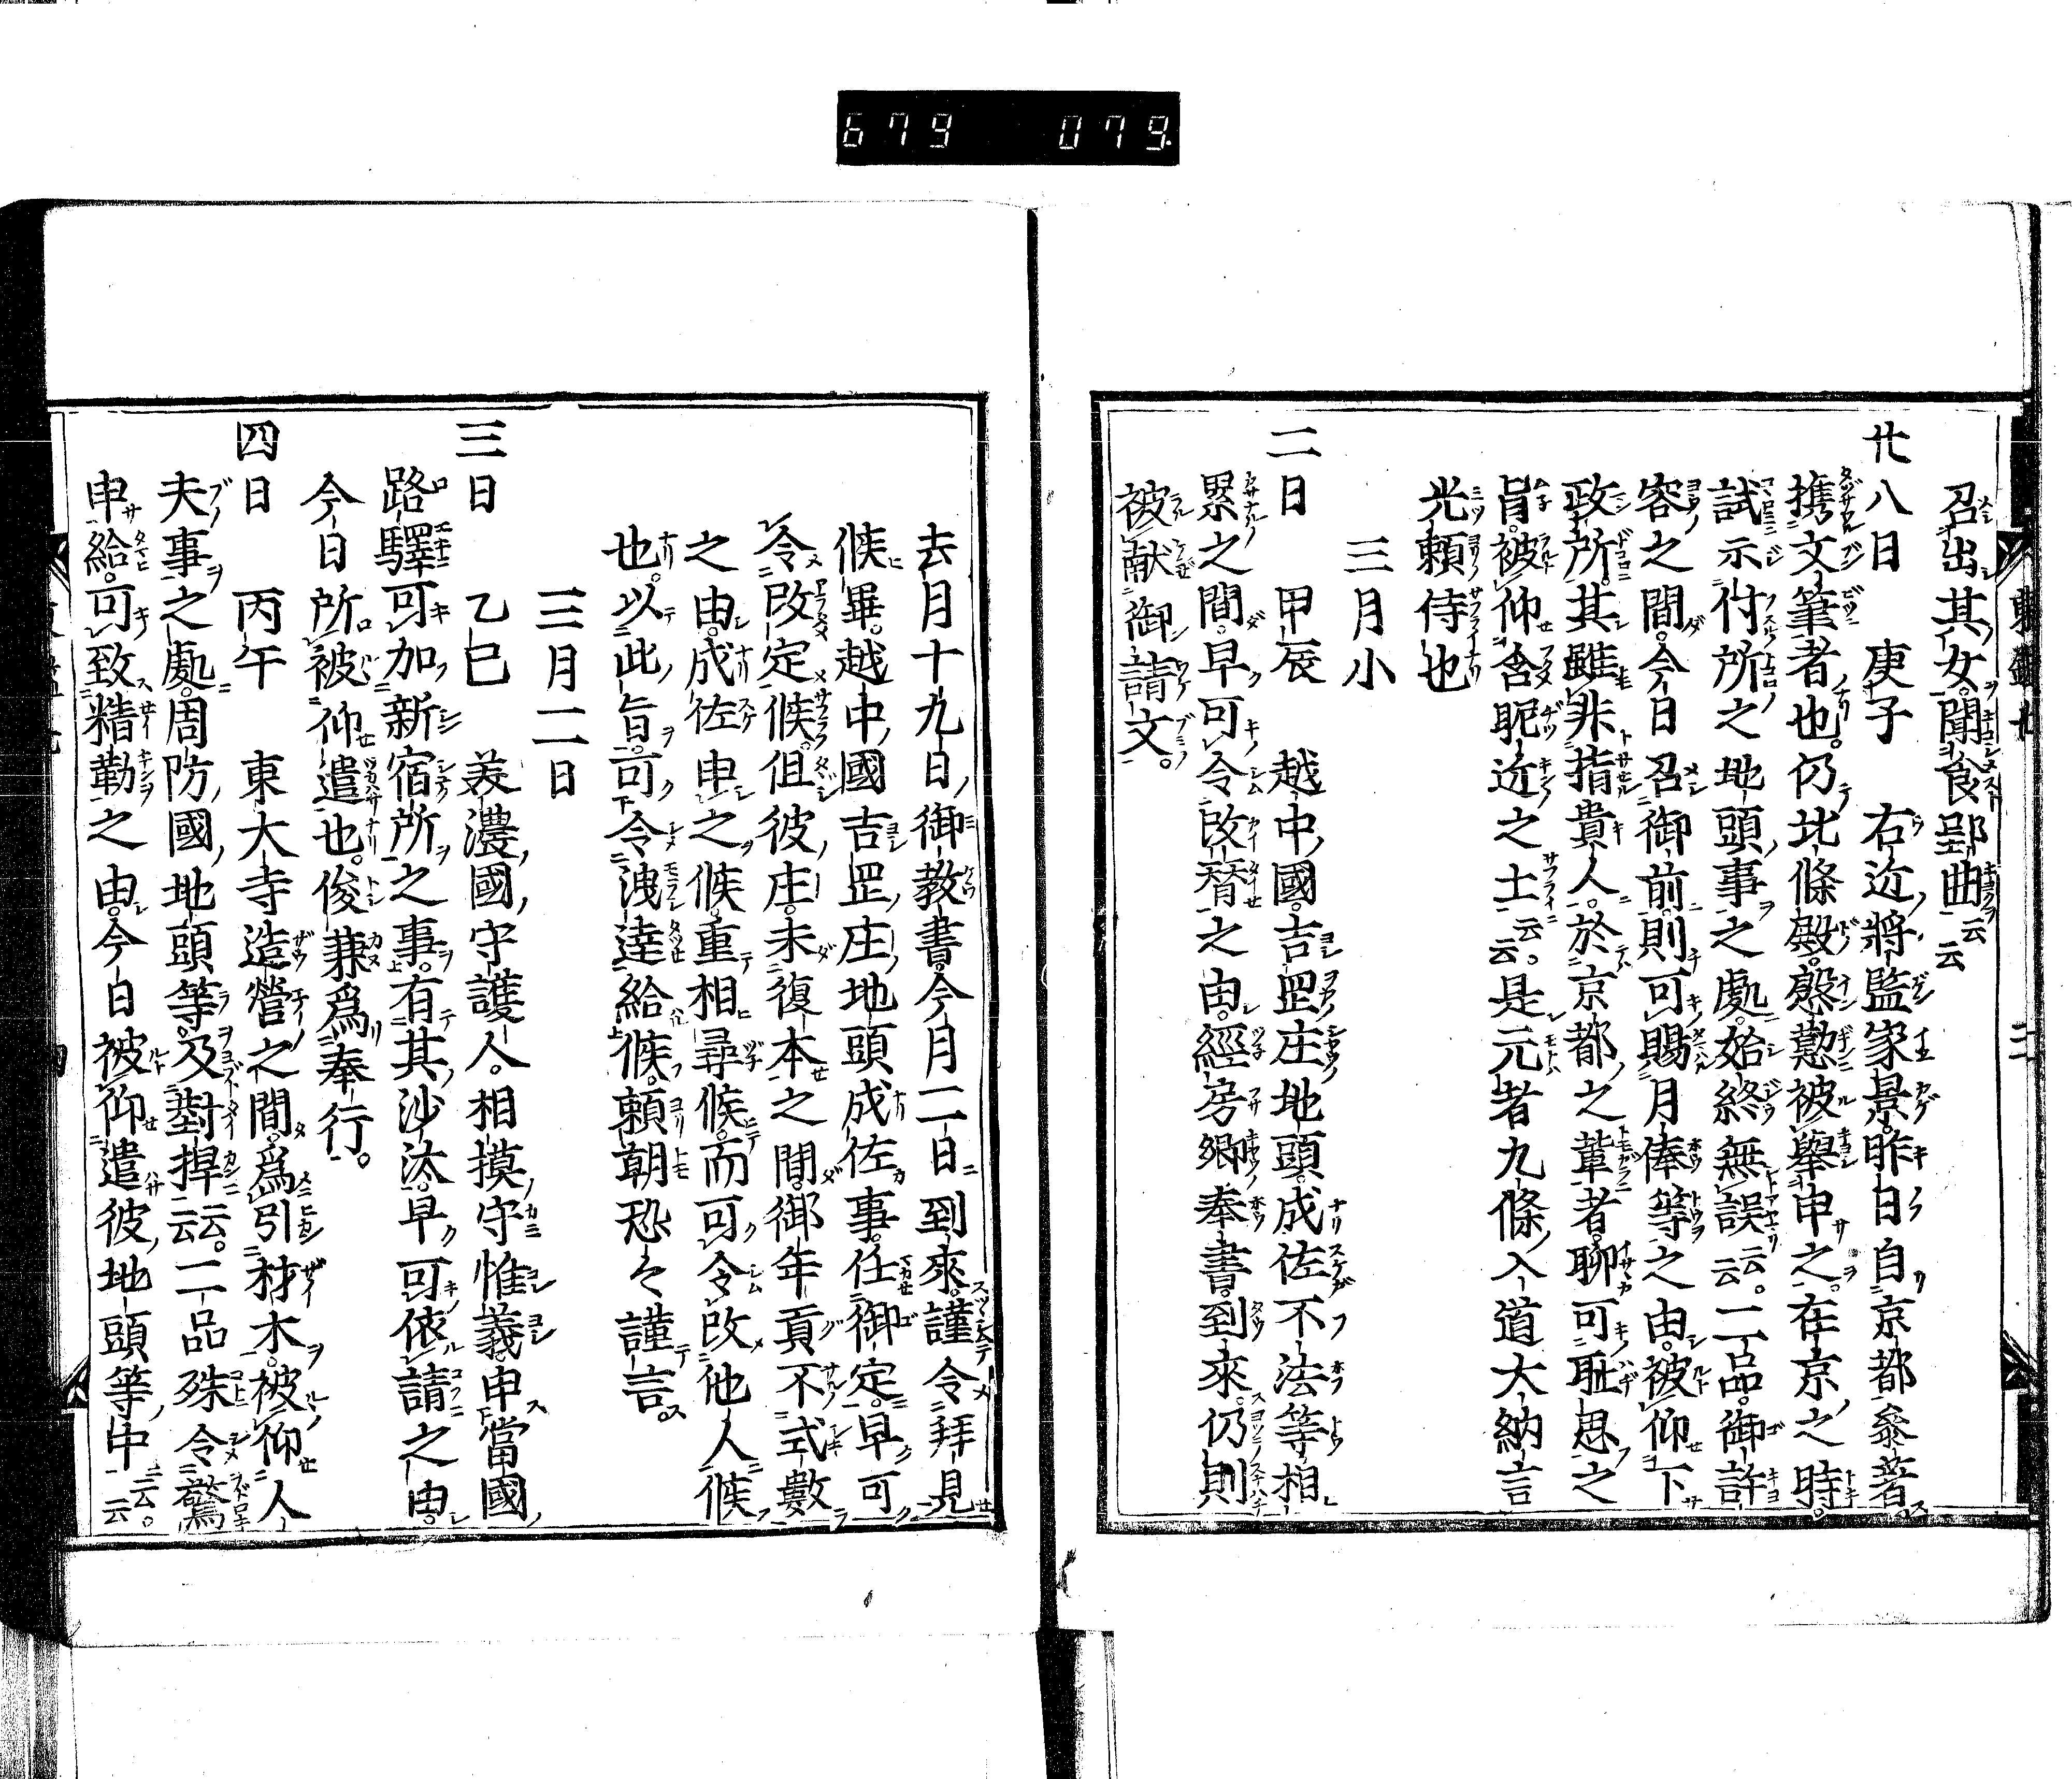 679 079
召出其女。聞食郢曲云云
廿八日 庚子 右近將監家景。昨日自京都參著。
携文筆者也。仍北條殿。慇懃被擧申之。在京之時。
試示付所之地頭事之處。始終無誤云云。二品。御許
容之間。今日召御前。則可賜月俸等之由。被仰下
政所。其雖非指貴人。於京都之輩者。聊可耻思之
旨。被仰含昵近之士云云。是元者九條入道大納言
光頼侍也
三月小
二日 甲辰 越中國。吉罡庄地頭。成佐不法等相
累之間。早可令改替之由。經房卿奉書。到來。仍則
被献御請文。
去月十九日御教書。今月二日到來。謹令拜見
候畢。越中國吉罡庄地頭成佐事。任御定。早可
令改定候。但彼庄。未復本之間。御年貢不式數
之由。成佐申之候。重相尋候。而可令改他人候
也。以此旨。可令洩達給候。頼朝恐々謹言。
三月二日
三日 乙巳 美濃國守護人。相摸守惟義申當國
路驛可加新宿所之事。有其沙汰。早可依請之由。
今日所被仰遣也。俊兼爲奉行。
四日 丙午 東大寺造營之間。爲引材木。被仰人
夫事之處。周防國地頭等。及對捍云云。二品殊令驚
申給。可致精勤之由。今日被仰遣彼地頭等中云云。